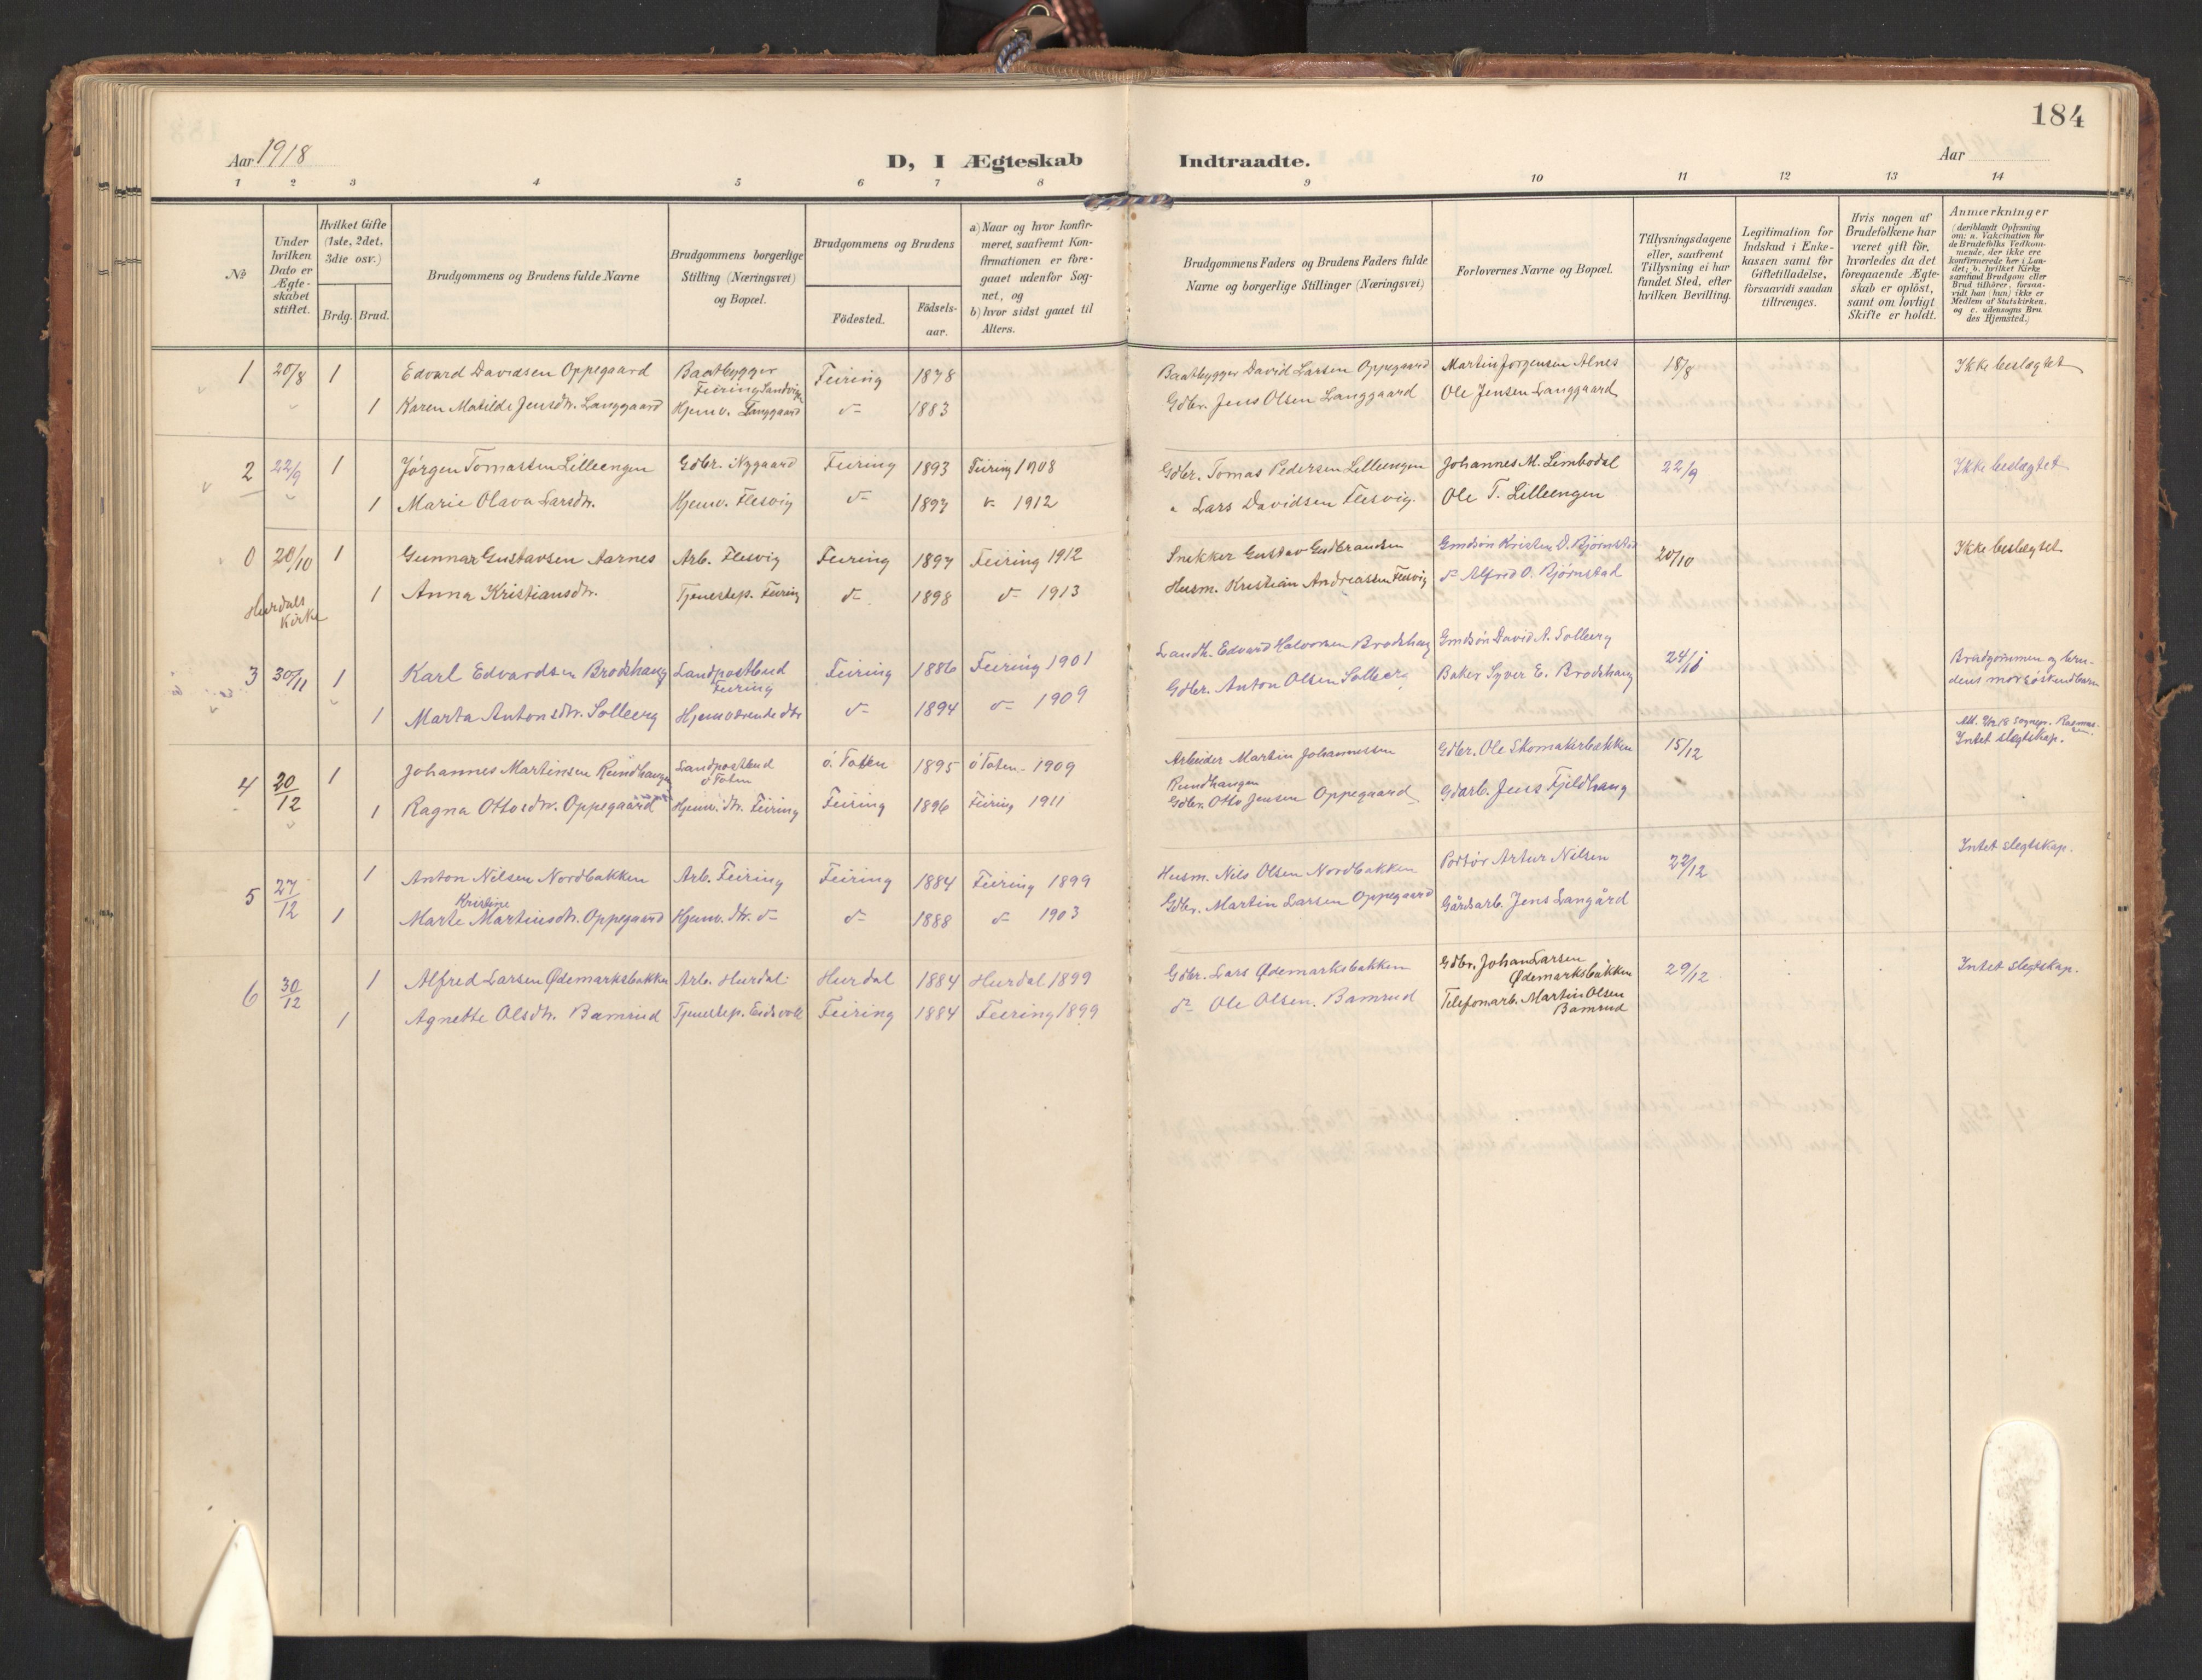 184
Aar 1918
D, I Ægteskab Indtraadte.
Aar
1 2 3 4 5 6 7 8 9 10 11 12 13 14
No
Under hvilken Dato er Ægteskabet stiftet.
Hvilket Gifte (1ste, 2det, 3die osv.)
Brdg. Brud.
Brudgommens og Brudens fulde Navne
Brudgommens borgerlige Stilling (Næringsvei) og Bopæl.
Brudgommens og Brudens
Födested.
Födselsaar.
a) Naar og hvor konfirmeret, saafremt Konfirmationen er foregaaet udenfor Sognet, og
b) hvor sidst gaaet til Alters.
Brudgommens Faders og Brudens Faders fulde Navne og borgerlige Stillinger (Næringsvei)
Forlovernes Navne og Bopæl.
Tillysningsdagene eller, saafremt Tillysning ei har fundet Sted, efter hvilken Bevilling.
Legitimation for Indskud i Enkekassen samt for Giftetilladelse, forsaavidt saadan tiltrænges.
Hvis nogen af Brudefolkene har været gift för, hvorledes da det foregaaende Ægteskab er oplöst, samt om lovligt Skifte er holdt.
Anmærkninger (deriblandt Oplysning om: a. Vakcination for de Brudefolks Vedkommende, der ikke ere konfirmerede her i Landet; b. hvilket Kirkesamfund Brudgom eller Brud tilhörer, forsaavidt han (hun) ikke er Medlem af Statskirken. og c. udensogns Brudes Hjemsted.)
1 20/8 1 Edvard Davidsen Oppegaard Baatbygger Feiring Sandvigen Feiring 1878 Baatbygger David Larsen Oppegaard Martin Jorgensen Alnes 18/8 Ikke beslægtet
1 Karen Matilde Jensdtr. Langgaard Hjemv. Langgaard d- 1883 Gdbr. Jens Olsen Langgaard Ole Jensen Langgaard
2 22/9 1 Jörgen Tomassen Lilleengen Gdbr. Nygaard Feiring 1893 Feiring 1908 Gdbr. Tomas Pedersen Lilleengen Johannes M. Limbodal 22/9 Ikke beslægtet
1 Marie Olava Larsdtr. Hjemv. Flesvig d- 1897 d- 1912 " Lars Davidsen Flesvig. Ole T. Lilleengen
0 20/10 1 Gunnar Gustavsen Aarnes Arb. Flesvig Feiring 1897 Feiring 1912 Snekker Gustav Gudbrandsen Gmdsön Kristen O. Björnstad 20/10 Ikke beslegtet
Hurdals Kirke 1 Anna Kristiansdtr. Tjenestep. Feiring d- 1898 d- 1913 Husm. Kristian Andreassen Flesvig d- Alfred O. Björnstad
3 30/11 1 Karl Edvardsen Brodshaug Landpostbud Feiring Feiring 1886 Feiring 1901 Landh. Edvard Halvorsen Brodshaug Gmdsön David A. Solberg 24/11 Brudgommen og brudens mor söskendbarn
1 Marta Antonsdtr. Solberg Hjemværende dtr d- 1894 d- 1909 Gdbr. Anton Olsen Solberg Baker Syver E. Brodshaug
4 20/12 1 Johannes Martinsen Rundhaugen Landpostbud ö Toten ö. Toten 1895 ö Toten 1909 Arbeider Martin Johannessen Rundhaugen Gdbr. Ole Skomakerbakken 15/12 Intet slegtskap.
1 Ragna Ottosdtr. Oppegaard Hjemv. dtr. Feiring Feiring 1896 Feiring 1911 Gdbr. Otto Jensen Oppegaard Gdarb. Jens Fjeldhaug
5 27/12 1 Anton Nilsen Nordbakken Arb. Feiring Feiring 1884 Feiring 1899 Husm. Nils Olsen Nordbakken Portör Artur Nilsen 22/12 Intet slegtskap.
1 Marte Kristine Martinsdtr. Oppegaard Hjemv. dtr. d- d- 1888 d- 1903 Gdbr. Martin Larsen Oppegaard Gårdsarb. Jens Langård
6 30/12 1 Alfred Larsen Ødemarksbakken Arb. Hurdal Hurdal 1884 Hurdal 1899 Gdbr. Lars Ødemarksbakken Gdbr. Johan Larsen Ødemarksbakken 29/12 Intet Slegtskap.
1 Agnethe Olsdtr. Bamrud Tjenestep. Eidsvoll Feiring 1884 Feiring 1899 d- Ole Olsen Bamrud Telefonarb. Martin Olsen Bamrud